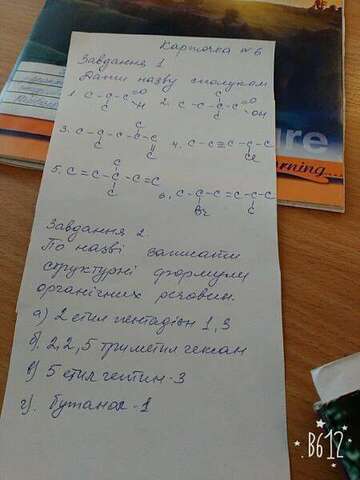 Карточка №6
Завдання 1
Дати назву сполукам
1. C-C-C=O H 2. C-C-C-C=O OH
C C
3. C-C-C-C-C 4. C-C≡C-C-C
C C Cl
5. C=C-C-C=C 6. C-C-C=C-C-C
C C Br C
Завдання 2.
По назві записати
структурні формули
органічних речовин.
а) 2 етил пентадієн 1,3
б) 2,2,5 триметил гексан
в) 5 етил гептин-3
г). Бутанол-1
ure
rning...
B612